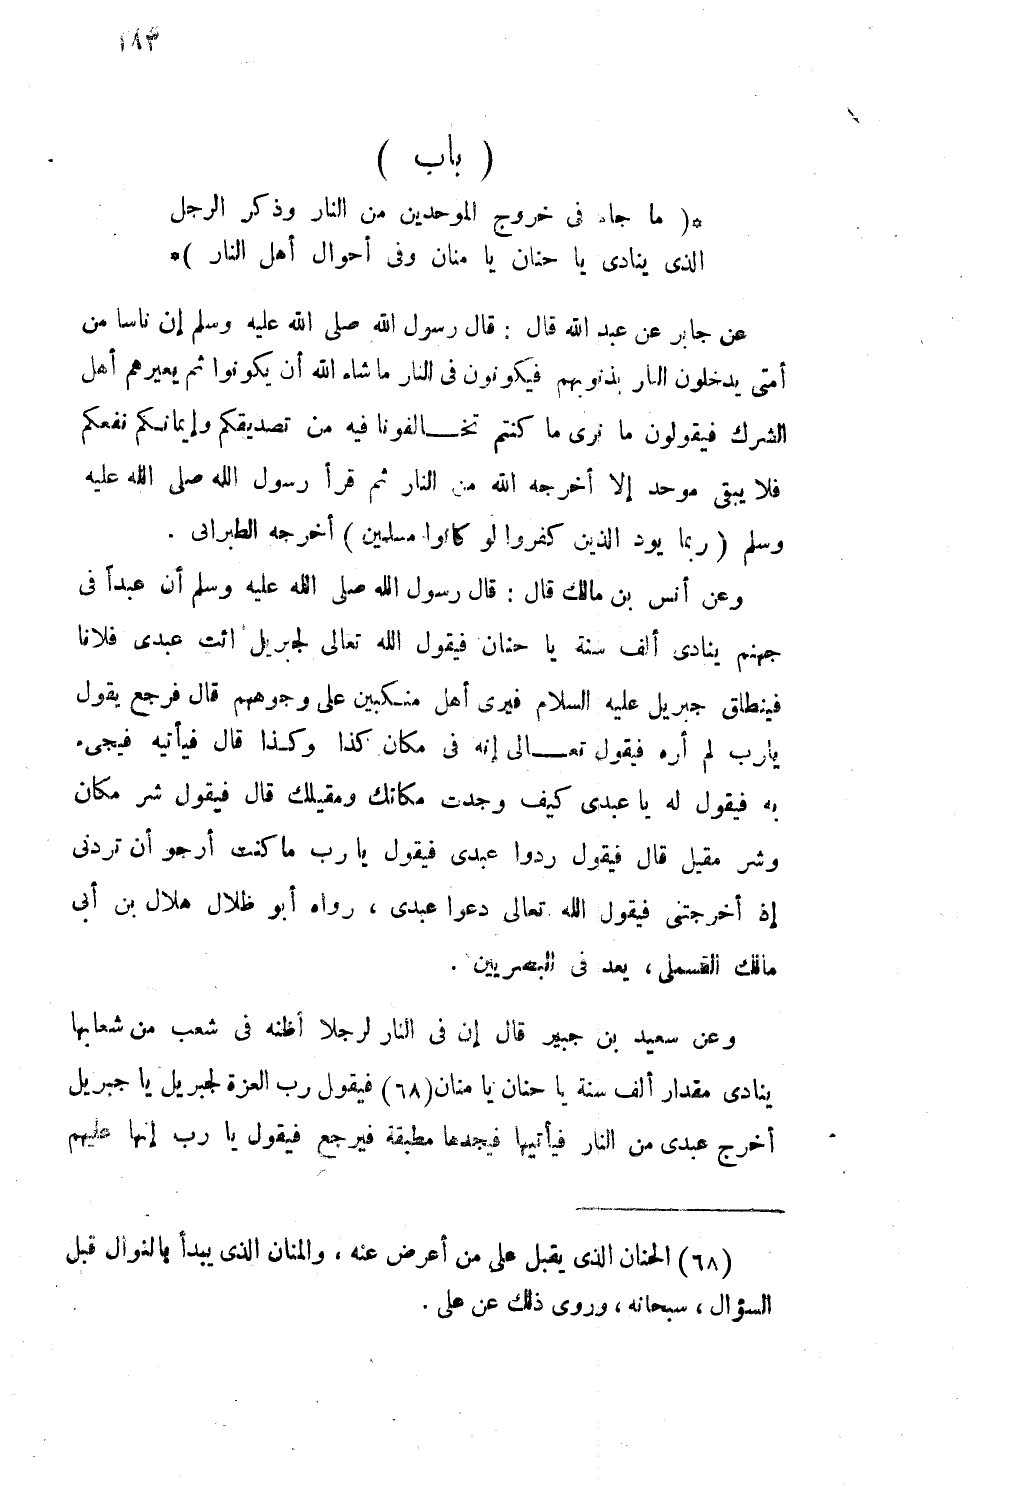 ١٨٣
( باب )
*( ما جاء فى خروج الموحدين من النار وذكر الرجل
الذى ينادى يا حنان يا منان وفى أحوال أهل النار )*
عن جابر عن عبد الله قال : قال رسول الله صلى الله عليه وسلم إن ناسا من
أمتى يدخلون النار بذنوبهم فيكونون فى النار ماشاء الله أن يكونوا ثم يعيرهم أهل
الشرك فيقولون ما نرى ما كنتم تخـــالفونا فيه من تصديقكم وإيمانـكم نفعكم
فلا يبقى موحد إلا أخرجه الله من النار ثم قرأ رسول الله صلى الله عليه
وسلم ( ربما يود الذين كفروا لو كانوا مسلمين ) أخرجه الطبرانى .
وعن أنس بن مالك قال : قال رسول الله صلى الله عليه وسلم أن عبداً فى
جهنم ينادى ألف سنة يا حنان فيقول الله تعالى لجبريل ائت عبدى فلانا
فينطلق جبريل عليه السلام فيرى أهل منـكبين على وجوههم قال فرجع يقول
يارب لم أره فيقول تعـــالى إنه فى مكان كذا وكـذا قال فيأتيه فيجىء
به فيقول له يا عبدى كيف وجدت مكانك ومقيلك قال فيقول شر مكان
وشر مقيل قال فيقول ردوا عبدى فيقول يا رب ماكنت أرجو أن تردنى
إذ أخرجتنى فيقول الله تعالى دعوا عبدى ، رواه أبو ظلال هلال بن أبى
مالك القسملى ، يعد فى البصريين .
وعن سعيد بن جبير قال إن فى النار لرجلا أظنه فى شعب من شعابها
ينادى مقدار ألف سنة يا حنان يا منان(٦٨) فيقول رب العزة لجبريل يا جبريل
أخرج عبدى من النار فيأتيها فيجدها مطبقة فيرجع فيقول يا رب إنها عليهم
(٦٨) الحنان الذى يقبل على من أعرض عنه ، والمنان الذى يبدأ بالنوال قبل
السؤال ، سبحانه ، وروى ذلك عن على .